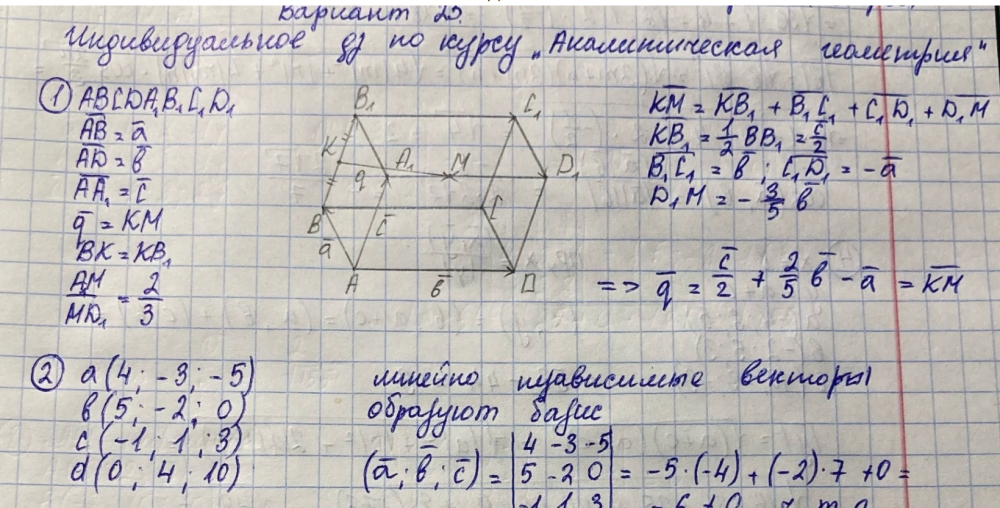 Вариант 23.
Индивидуальное дз по курсу „Аналитическая геометрия"
① ABCDA₁B₁C₁D₁
A̅B̅ = a̅
A̅D̅ = b̅
A̅A̅₁ = c̅
q̅ = KM
BK = KB₁
AM/MD₁ = 2/3
B₁
C₁
K
A₁
M
D₁
q
B
c̅
C
a̅
A
b̅
D
K̅M̅ = K̅B̅₁ + B̅₁C̅₁ + C̅₁D̅₁ + D̅₁M̅
K̅B̅₁ = 1/2 BB₁ = c̅/2
B̅₁C̅₁ = b̅ ; C̅₁D̅₁ = -a̅
D₁M = - 3/5 b̅
=> q̅ = c̅/2 + 2/5 b̅ - a̅ = K̅M̅
② a (4 ; -3 ; -5)
b (5 ; -2 ; 0)
c (-1 ; 1 ; 3)
d (0 ; 4 ; 10)
линейно независимые векторы
образуют базис
(a̅ ; b̅ ; c̅) = |4 -3 -5|
|5 -2 0| = -5·(-4) + (-2)·7 + 0 =
|-1 1 3|